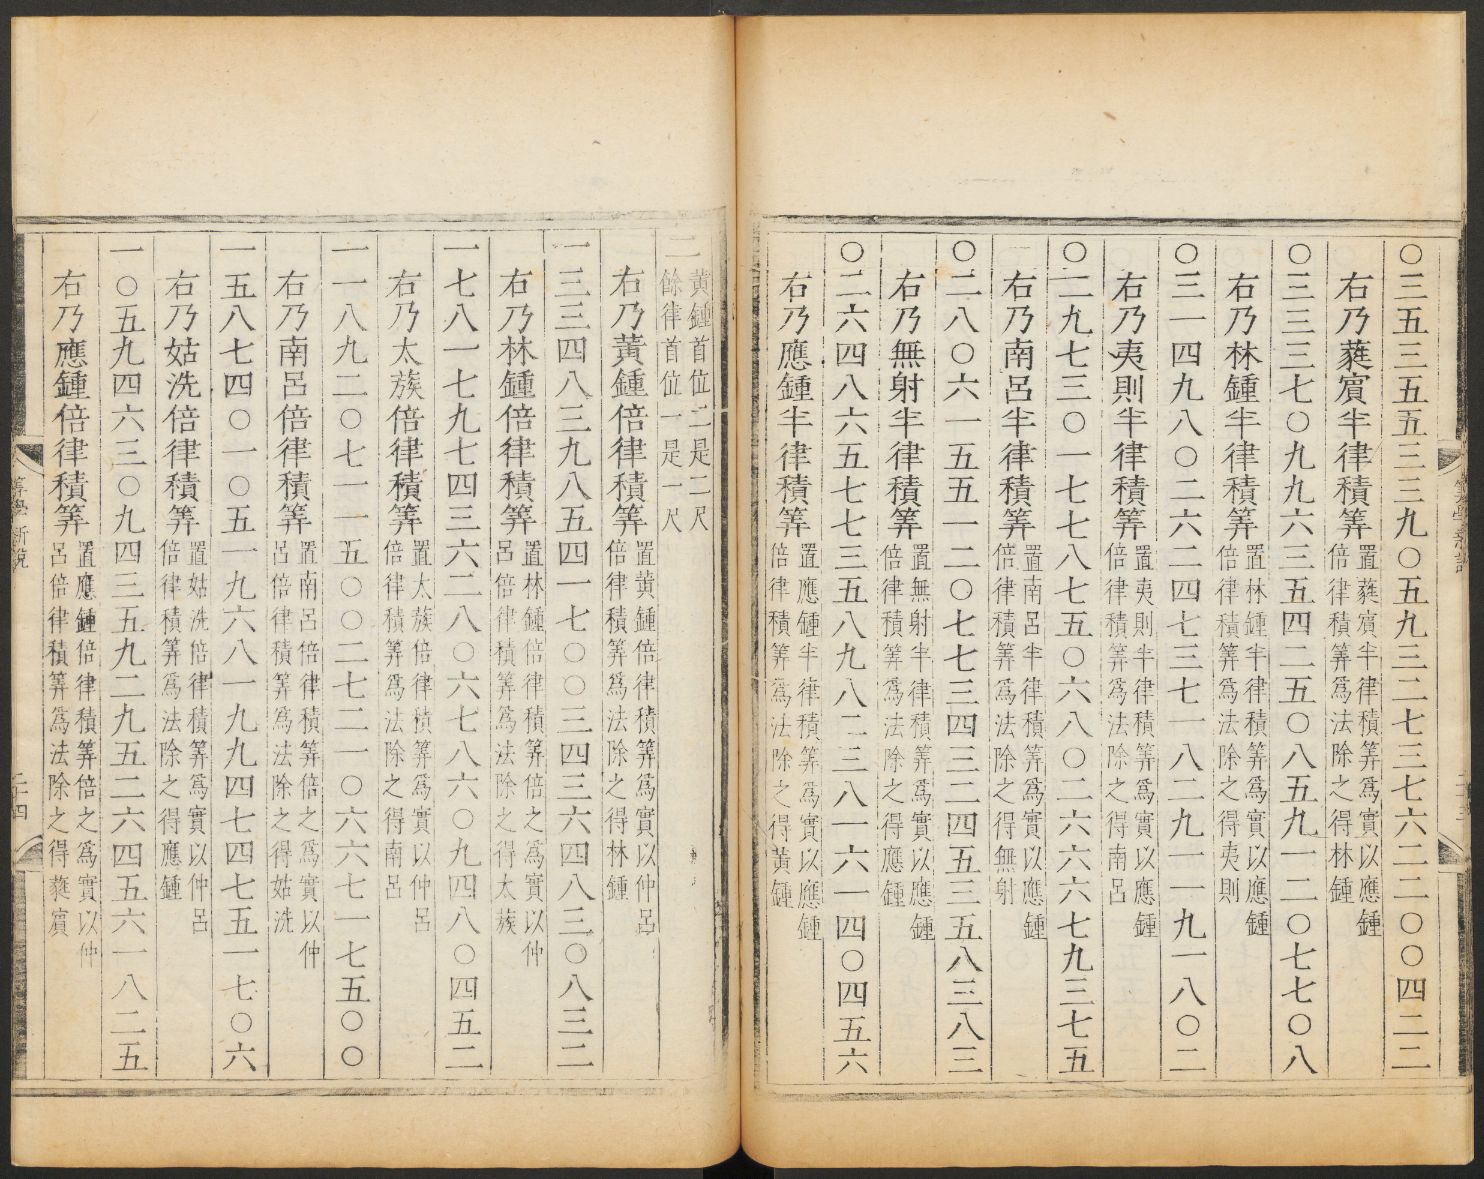 〇三五三五五三三九〇五九三二七三七六二二〇〇四二二
右乃蕤賓半律積筭
置蕤賓半律積筭爲實以應鍾
倍律積筭爲法除之得林鍾
〇三三三七〇九九六三五四二五〇八五九一二〇七七〇八
右乃林鍾半律積筭
置林鍾半律積筭爲實以應鍾
倍律積筭爲法除之得夷則
〇三一四九八〇二六二四七三七一八二九一一九一八〇二
右乃夷則半律積筭
置夷則半律積筭爲實以應鍾
倍律積筭爲法除之得南呂
〇二九七三〇一七七八七五〇六八〇二六六六七九三七五
右乃南呂半律積筭
置南呂半律積筭爲實以應鍾
倍律積筭爲法除之得無射
〇二八〇六一五五一二〇七七三四三二四五三五八三八三
右乃無射半律積筭
置無射半律積筭爲實以應鍾
倍律積筭爲法除之得應鍾
〇二六四八六五七七三五八九八二三八一六一四〇四五六
右乃應鍾半律積筭
置應鍾半律積筭爲實以應鍾
倍律積筭爲法除之得黃鍾
二
黃鍾首位二是二尺
餘律首位一是一尺
右乃黃鍾倍律積筭
置黃鍾倍律積筭爲實以仲呂
倍律積筭爲法除之得林鍾
一三三四八三九八五四一七〇〇三四三六四八三〇八三二
右乃林鍾倍律積筭
置林鍾倍律積筭倍之爲實以仲
呂倍律積筭爲法除之得太蔟
一七八一七九七四三六二八〇六七八六〇九四八〇四五二
右乃太蔟倍律積筭
置太蔟倍律積筭爲實以仲呂
倍律積筭爲法除之得南呂
一一八九二〇七一一五〇〇二七二一〇六六七一七五〇〇
右乃南呂倍律積筭
置南呂倍律積筭倍之爲實以仲
呂倍律積筭爲法除之得姑洗
一五八七四〇一〇五一九六八一九九四七四七五一七〇六
右乃姑洗倍律積筭
置姑洗倍律積筭爲實以仲呂
倍律積筭爲法除之得應鍾
一〇五九四六三〇九四三五九二九五二六四五六一八二五
右乃應鍾倍律積筭
置應鍾倍律積筭倍之爲實以仲
呂倍律積筭爲法除之得蕤賓
算學新說
二十四